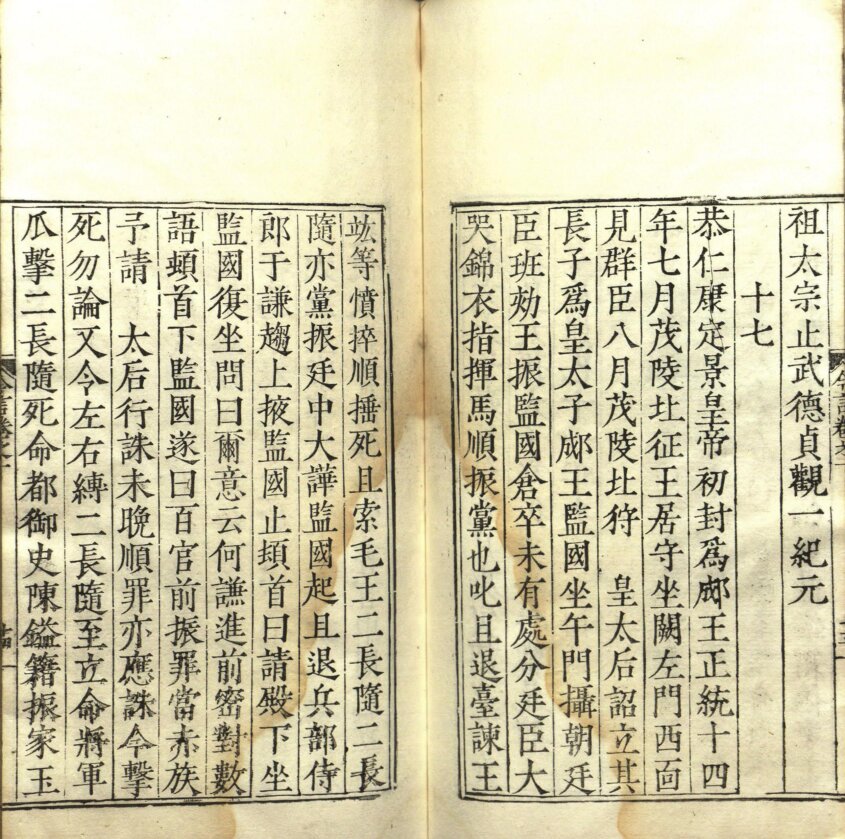 祖太宗止武德貞觀一紀元
十七
恭仁康定景皇帝初封爲郕王正統十四
年七月茂陵北征王居守坐闕左門西面
見群臣八月茂陵北狩　皇太后詔立其
長子爲皇太子郕王監國坐午門攝朝廷
臣班劾王振監國倉卒未有處分廷臣大
哭錦衣指揮馬順振黨也叱且退臺諫王
竑等憤捽順捶死且索毛王二長隨二長
隨亦黨振廷中大譁監國起且退兵部侍
郎于謙趨上掖監國止頓首曰請殿下坐
監國復坐問曰爾意云何謙進前密對數
語頓首下監國遂曰百官前振罪當赤族
予請　太后行誅未晩順罪亦應誅今擊
死勿論又令左右縛二長隨至立命將軍
瓜擊二長隨死命都御史陳鎰籍振家玉